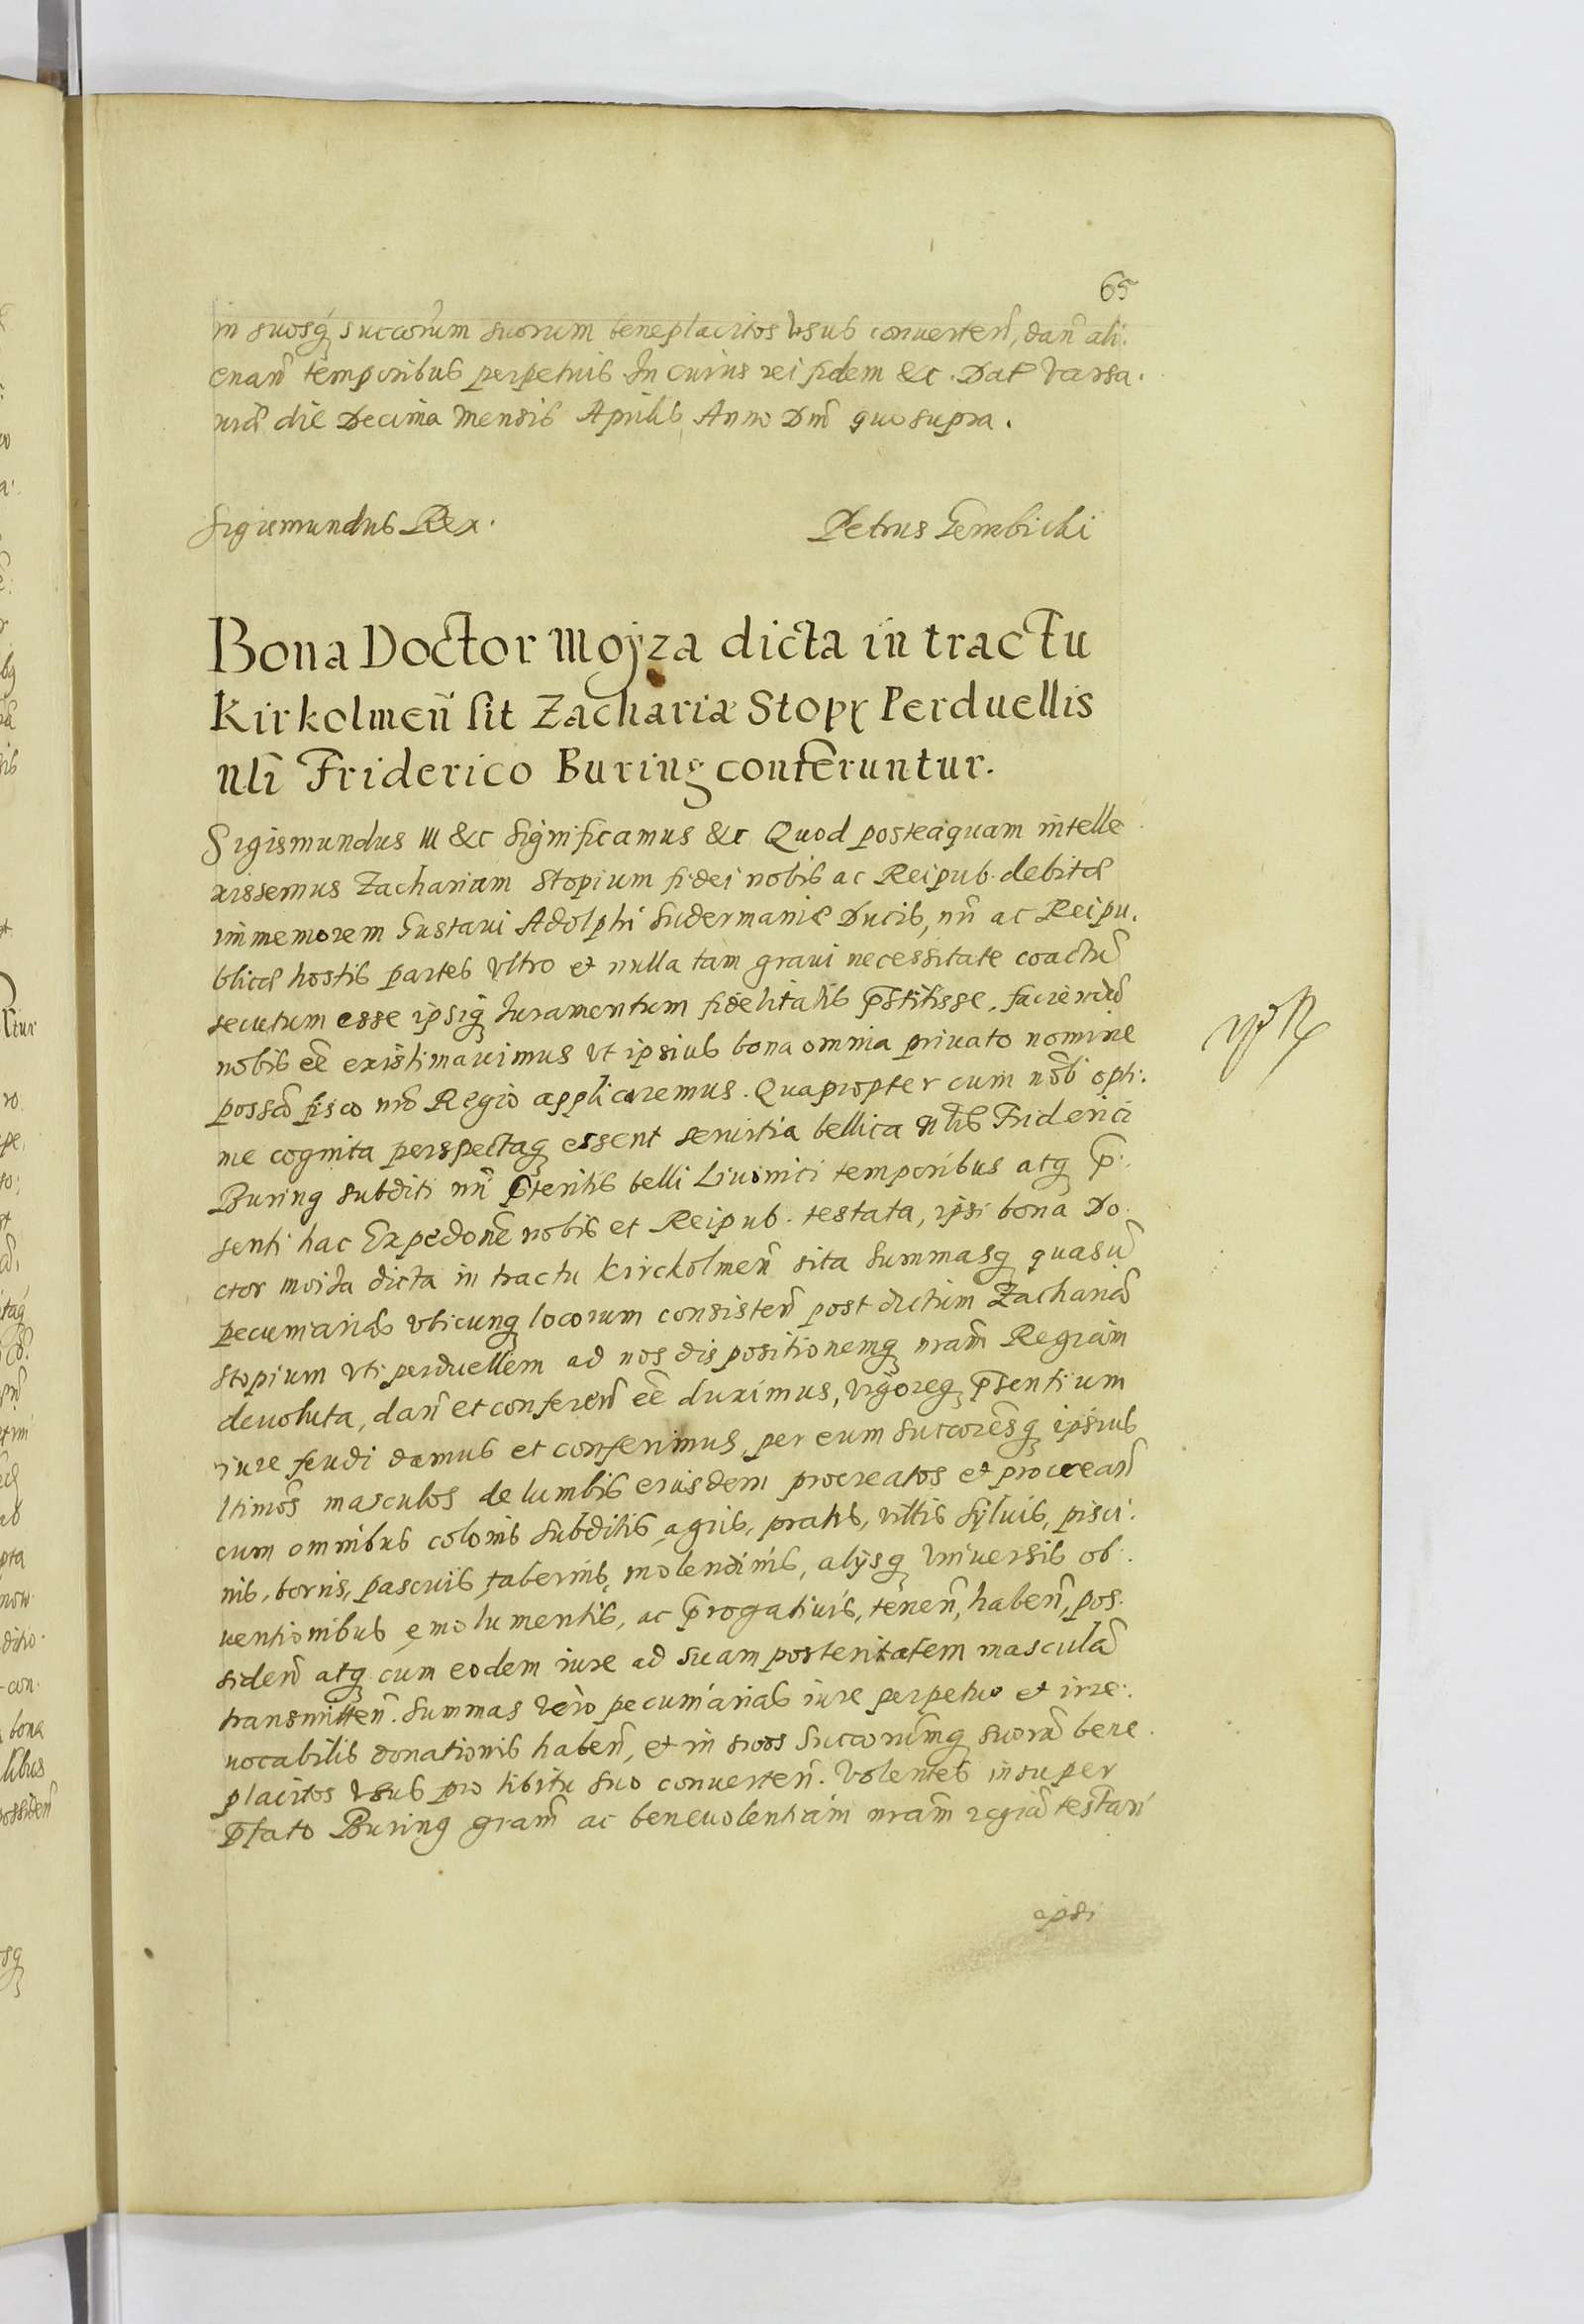 65
in suosq succorum suorum beneplacitos vsus conuerteñ, dañ ali:
enañ temporibus perpetuis. In cuius rei fidem &c. Dat Varsa.
uiæ die Decima Mensis Aprilis Anno Dni quo supra.
Sigismundus Rex.
Petrus Gembicki
Bona Doctor Moÿza dicta in tractu
Kirkolmeñ sit Zachariæ Stopÿ Perduellis
nli Friderico Buring conferuntur.
Sigismundus III &c Significamus &c Quod posteaquam intelle
xissemus Zachariam Stopium fidei nobis ac Reipub. debitæ
immemorem Gustaui Adolphi Sudermaniæ Ducis, nri ac Reipu.
blicæ hostis partes vltro et nulla tam graui necessitate coactũ
secutum esse ipsiq Iuramentum fidelitatis p̃stitisse, faciendũ
nobis eẽ existimauimus vt ipsius bona omnia priuato nomine
possã fisco nrõ Regio applicaremus. Quapropter cum nob opti:
me cognita perspectaq essent seruitia bellica nlis Friderici
Buring subditi nri p̃teritis belli Liuonici temporibus atq p̃:
senti hac Expedone nobis et Reipub. testata, ipsi bona Do
ctor moiza dicta in tractu Kirckolmeñ sita Summasq quasuis
pecuniarias vbicunq locorum consisteñ post dictum Zachariã
Stopium vti perduellem ad nos dispositionemq nram Regiam
deuoluta, dañ et confereñ eẽ duximus, vigoreq p̃sentium
iure feudi damus et conferimus, per eum Succoresq ipsius
ltimos masculos de lumbis eiusdem procreatos et procreañ
cum omnibus colonis Subditis, agris, pratis, villis Syluis, pisci:
nis, hornis, pascuis, tabernis, molendinis, alijsq Vniuersis ob:
uentionibus emolumentis, ac p̃rogatiuis, teneñ, habeñ, pos:
sideñ atq cum eodem iure ad suam posteritatem masculã
transmitteñ. Summas Vero pecuniarias iure perpetuo et irre:
uocabilis donationis habeñ, et in suos Succorumq suorũ bene
placitos vsus pro libitu suo conuerteñ. Volentes insuper
p̃fato Buring grañ ac beneuolentiam nram regiã testari
ipsi